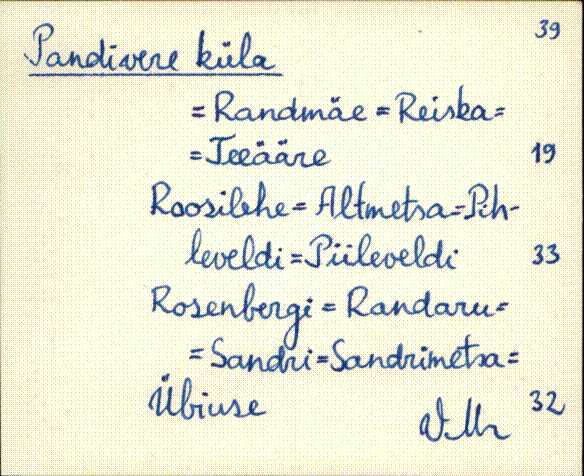 39
Pandivere küla
= Randmäe = Reiska =
= Teeääre 19
Roosilehe = Altmetsa = Pih-
leveldi = Piileveldi 33
Rosenbergi = Randaru =
= Sandri = Sandrimetsa =
Übiuse 32